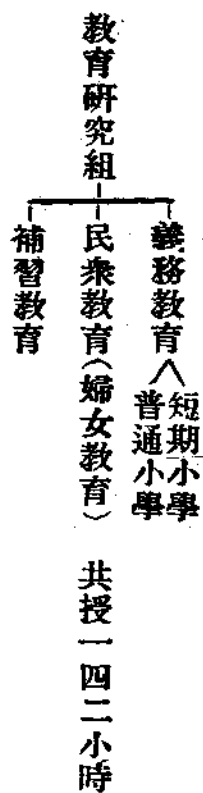 教育研究組
義務教育
短期小學
普通小學
民衆教育(婦女教育) 共授一四二小時
補習教育